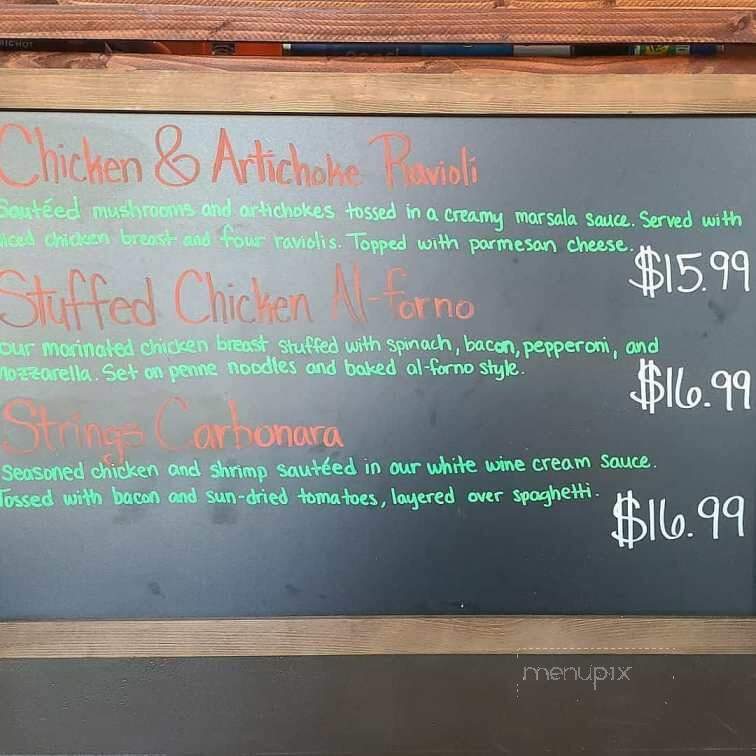 Chicken & Artichoke Ravioli
Sautéed mushrooms and artichokes tossed in a creamy marsala sauce. Served with
chicken breast and four raviolis. Topped with parmesan cheese.
$15.99
Stuffed Chicken Al-forno
our marinated chicken breast stuffed with spinach, bacon, pepperoni, and
mozzarella. Set on penne noodles and baked al-forno style.
$16.99
Strings Carbonara
Seasoned chicken and shrimp sautéed in our white wine cream sauce.
Tossed with bacon and sun-dried tomatoes, layered over spaghetti.
$16.99
menupix